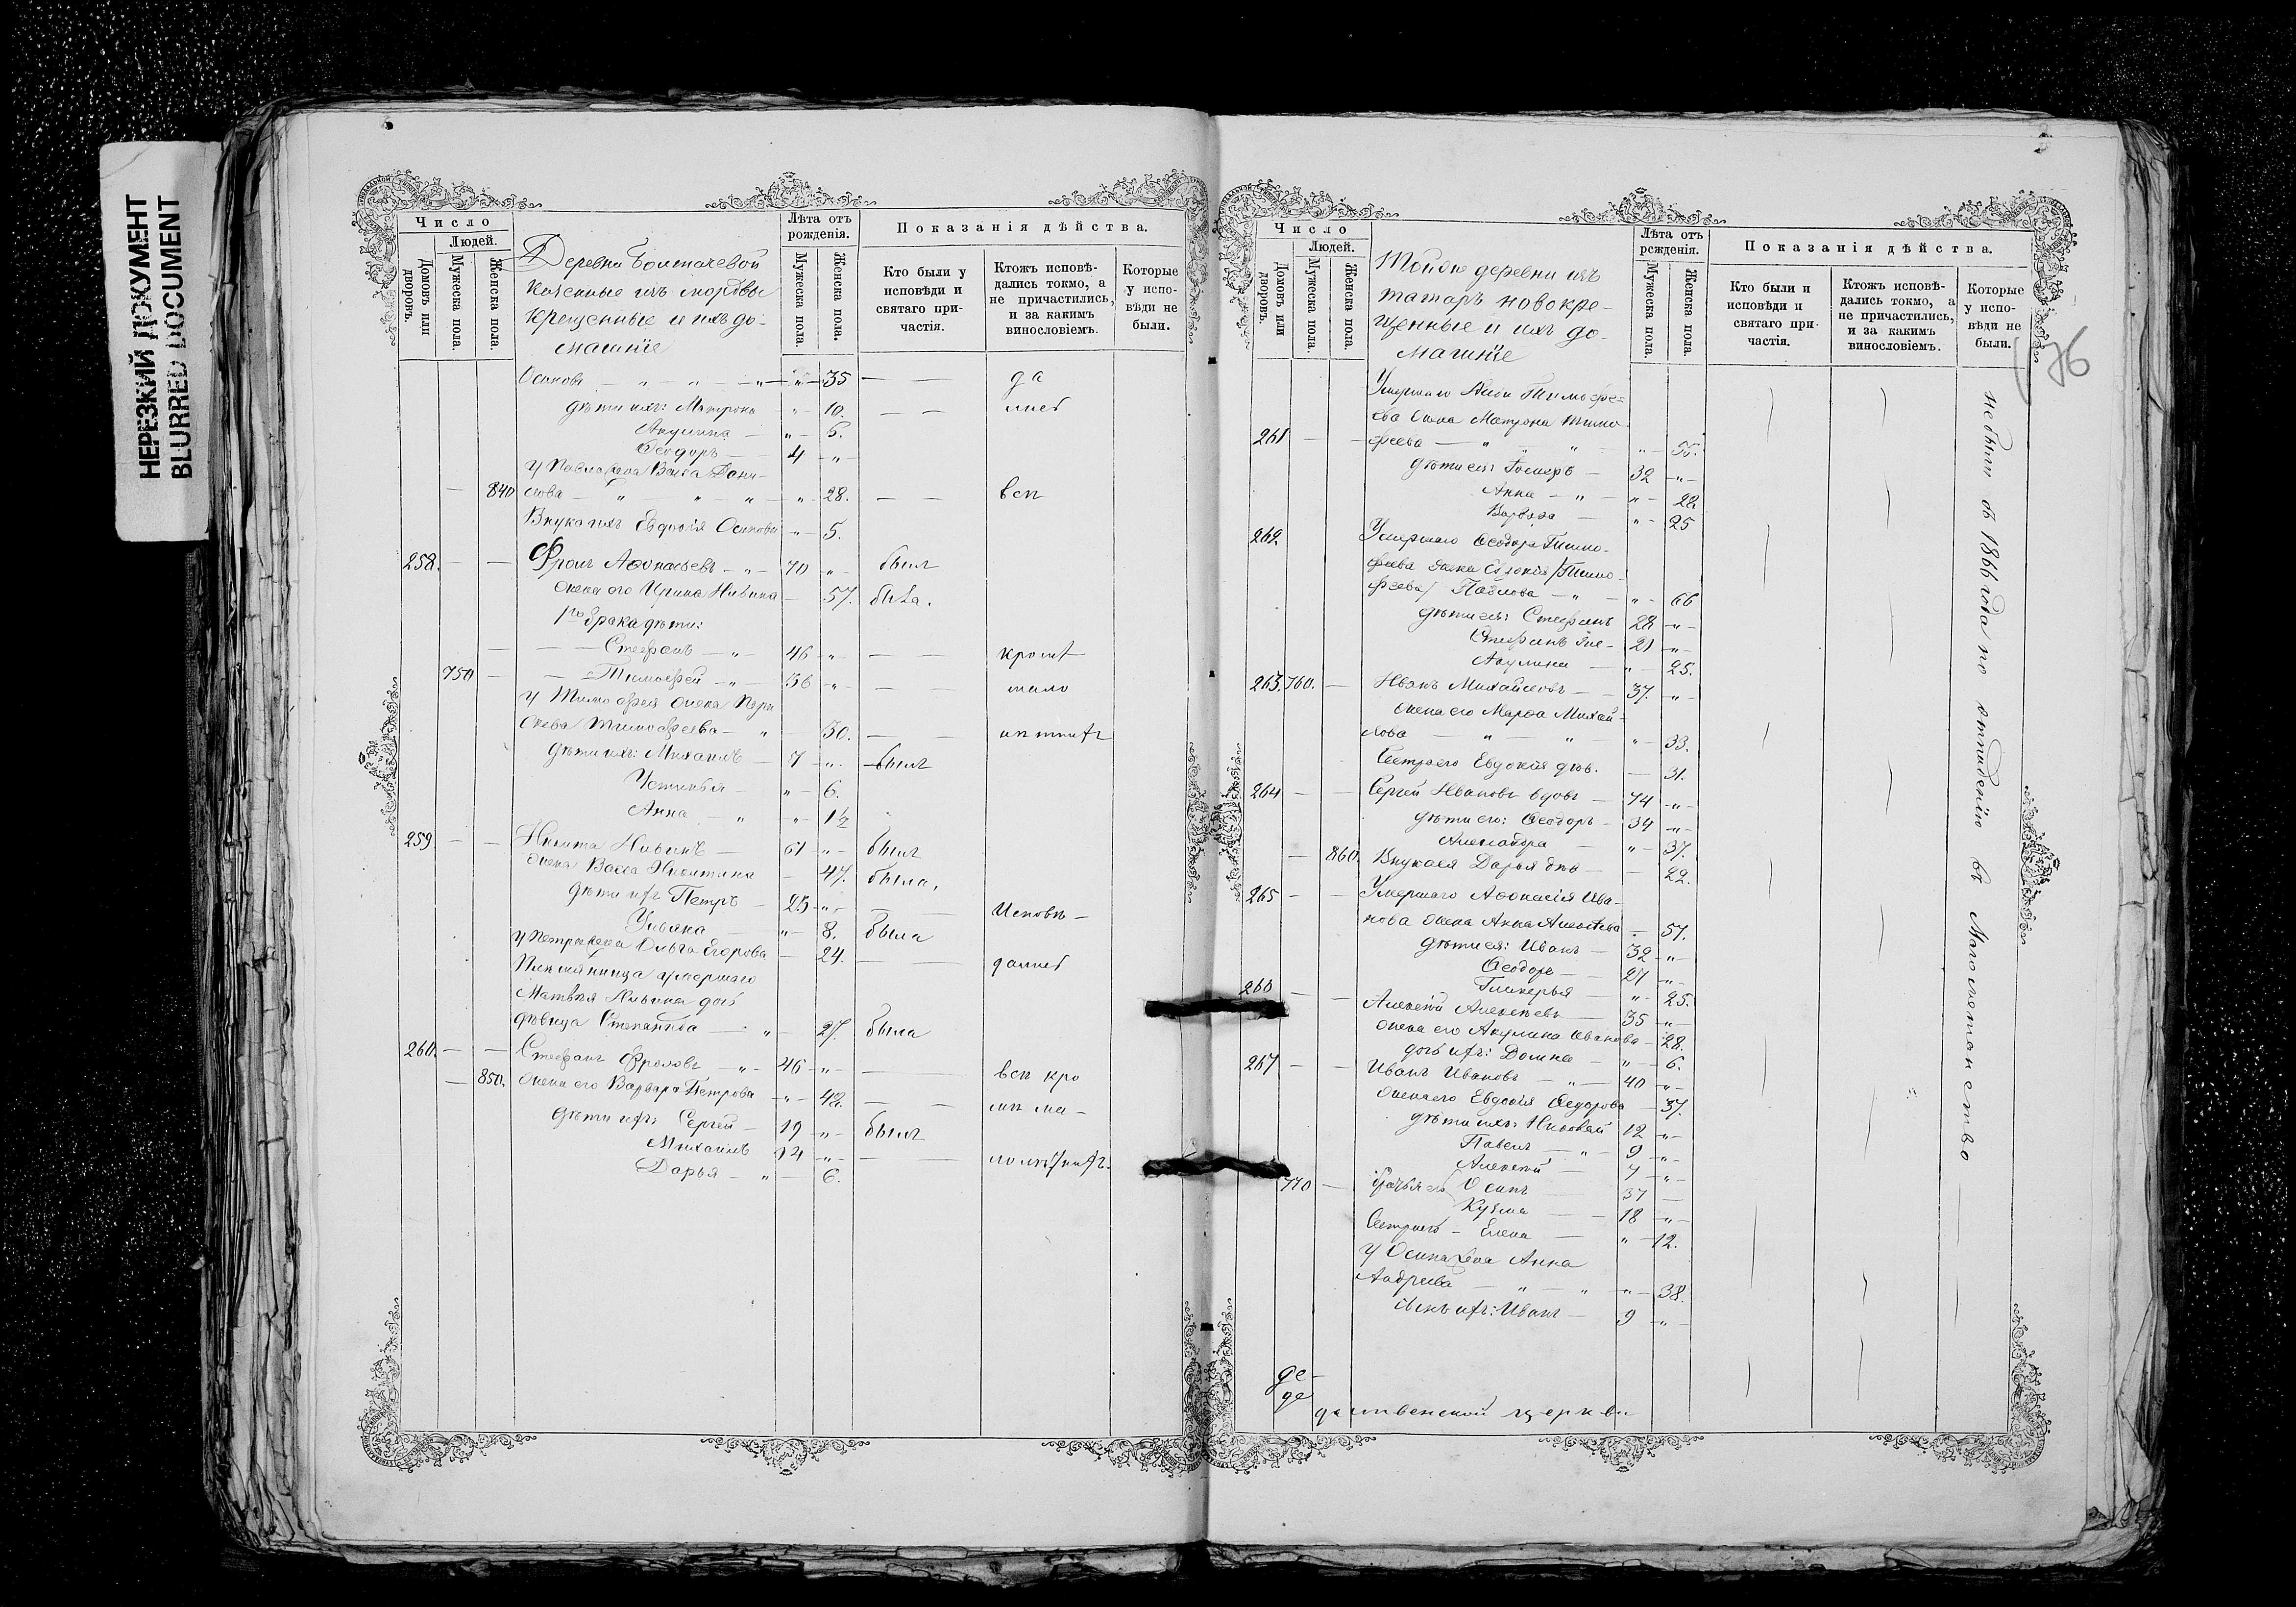 НЕРЕЗКИЙ ДОКУМЕНТ
BLURRED DOCUMENT
Число
Людей.
Домовъ или дворовъ.
Мужеска пола.
Женска пола.
Деревни Болтачевой
казенные изъ мордвы
крещенные и ихъ до-
машніе
Лѣта отъ рожденія.
Мужеска пола.
Женска пола.
Показанія дѣйства.
Кто были у исповѣди и святаго причастія.
Ктожъ исповѣ-
дались токмо, а
не причастились,
и за какимъ
винословіемъ.
Которые
у испо-
вѣди не
были.
Осипова — „ — „ — „ — 35 — — да
дѣти ихъ: Матрона — „ — 10. — —
Акулина — „ — 6.
Ѳеодоръ — 4 — „ —
у Павла жена Васса Дени-
— 840 сова — „ — „ — „ — 28. — — всп
Внука ихъ Евдокія Осипова „ — 5.
258. — — Фролъ Аѳонасьевъ — „ — 70 — „ — былъ
жена его Ирина Ильина — 57. была.
1го брака дѣти:
— — — Стефанъ — „ — 46 — „ — — —
750 — — Тимоѳей — „ — 36 — „ — — — мало
у Тимоѳея жена Пара-
скева Тимоѳеева — „ — 30. — —
дѣти ихъ: Михаилъ — 7 — „ — былъ
Устинья — „ — 6.
Анна — „ — „ — 1½
259 — — Никита Ильинъ — 61 — „ — былъ
жена Васса Никитина — 47. была,
дѣти ихъ Петръ — 25 — „ — — — Исповѣ —
Ульяна — „ — 8. была
у Петра жена Ольга Егорова — 24. — —
Племянница умершаго
Матвѣя Ильина дочь
дѣвица Степанида — „ — 27. была
260. — — Стефанъ Фроловъ — „ — 46 — „ — — всп кро
— 850. жена его Варвара Петрова — „ — 42. — —
дѣти ихъ: Сергей — 19 — „ — былъ
Михаилъ 14 — „ — — —
Дарья — „ — 6.
Число
Людей.
Домовъ или дворовъ.
Мужеска пола.
Женска пола.
Тойже деревни изъ
татаръ новокре-
щенные и ихъ до-
машніе
Лѣта отъ рожденія.
Мужеска пола.
Женска пола.
Показанія дѣйства.
Кто были и исповѣди и святаго причастія.
Ктожъ исповѣ-
дались токмо, а
не причастились,
и за какимъ
винословіемъ.
Которые
у испо-
вѣди не
были.
176
Умершаго Тимоѳе=
ева жена Матрона Тимо-
261 — — феева — „ „ „ — 55.
дѣти ея: — 32 — „ —
Анна — „ — „ — 28
Варвара — „ — 25
262. Умершаго Ѳеодора Тимо-
феева жена Евдокія /Тимо-
феева/ Павлова — „ — „ — 66
дѣти ея: Стефанъ 28 — „ —
Стефанъ 21 — „ —
Акулина — „ — 25.
263. 760. — Иванъ Михайловъ — 37. — „ —
жена его Марѳа Михай-
лова — „ — „ — „ — 33.
Сестра его Евдокія дѣв. — 31.
264 — — Сергей Ивановъ вдовъ — 74 — „ —
дѣти его: Ѳеодоръ — 34 — „ —
Александра — „ — 37.
— 860. Внука ея Дарья — 22.
265 — — Умершаго Аѳонасія Ива-
нова жена Анна Алексѣева — 57.
дѣти ея: Иванъ — 32 — „ —
Ѳеодоръ — 27 — „ —
Гликерья — „ — 25.
266 — — Алексѣй Алексѣевъ — 35 — „ —
жена его Акулина Иванова — 28.
дочь ихъ: Домна — „ — 6.
267 — — Иванъ Ивановъ — „ — 40 — „ —
жена его Евдокія Ѳедорова — 37.
дѣти ихъ: Николай 12 — „ —
Павелъ — „ — 9 — „ —
Алексѣй — 7 — „ —
770 — братья его Осипъ — 37 —
Кузма — 18 — „ —
Сестра — Елена — „ — 12.
у Осипа жена Анна
Андреева — „ — „ — 38.
сынъ ихъ: Иванъ — 9 — „ —
не были съ 1866 года по отпаденію въ Магометанство
де-
де
церкви